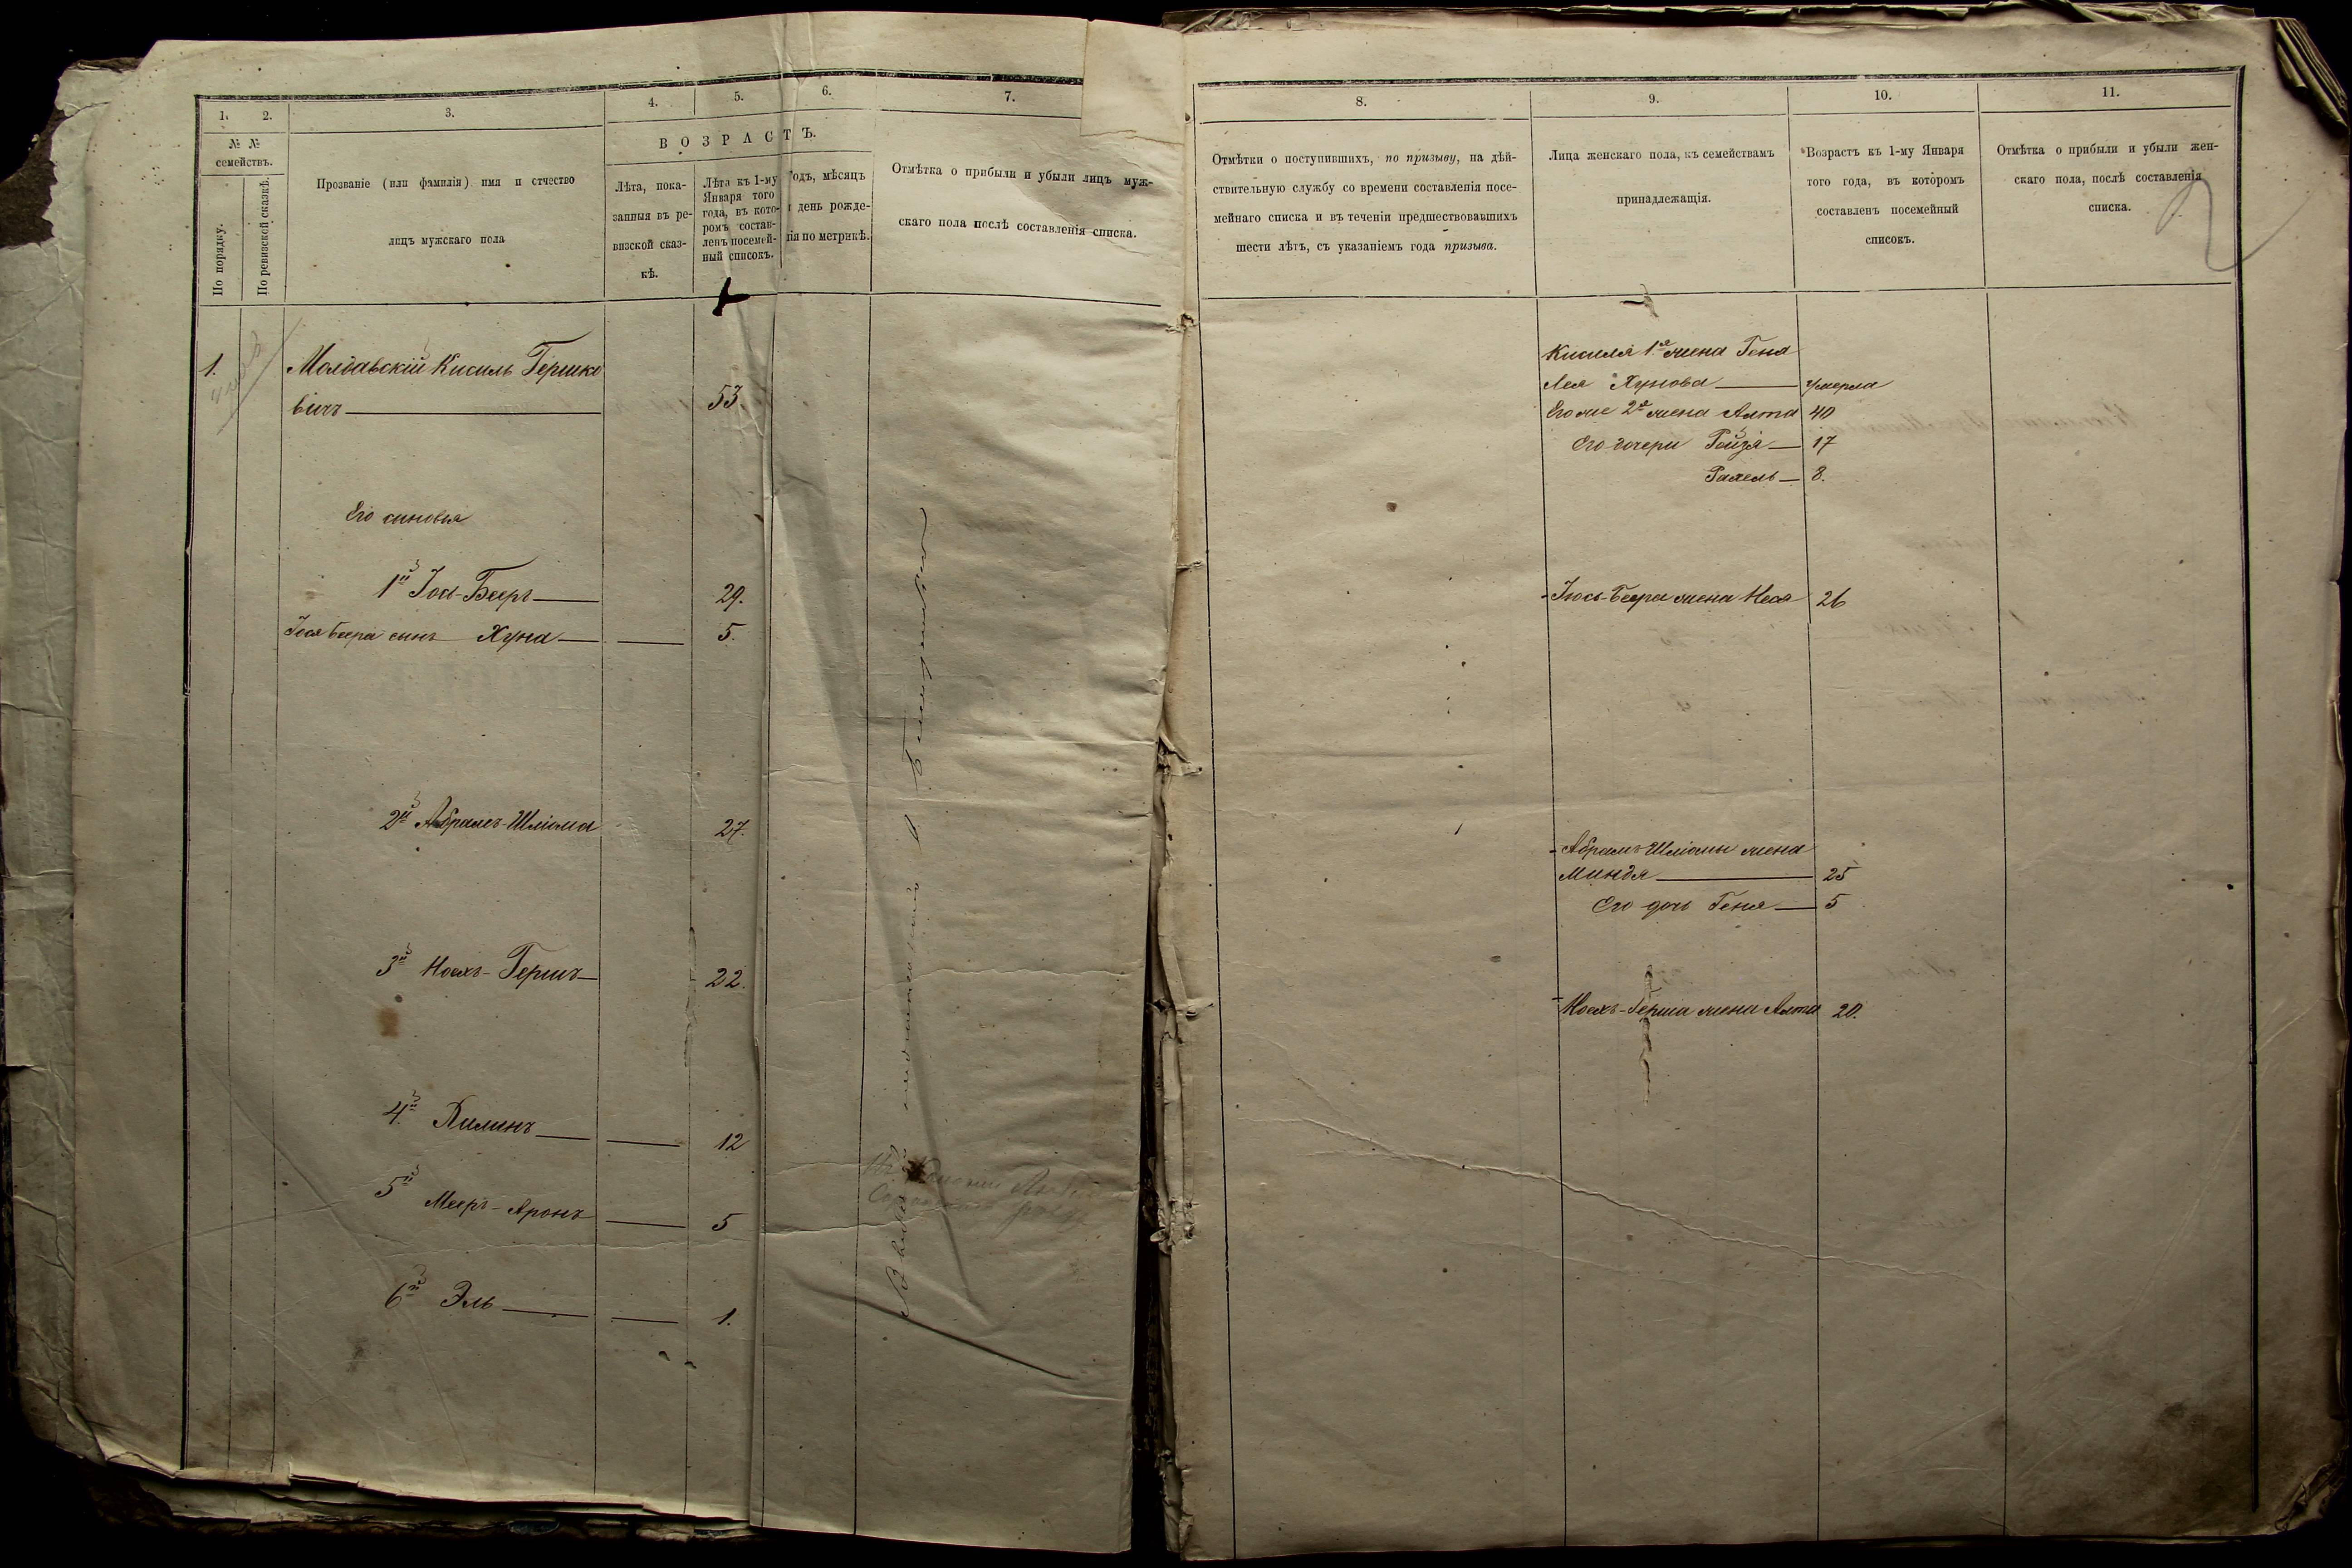 1.
2.
3.
4.
5.
6.
7.
№ №
семействъ.
По порядку.
По ревизской сказкѣ.
Прозваніе (или фамилія) имя и отчество
лицъ мужскаго пола
ВОЗРАСТЪ.
Лѣта, пока-
занныя въ ре-
визской сказ-
кѣ.
Лѣта къ 1-му
Января того
года, въ кото-
ромъ состав-
ленъ посемей-
ный списокъ.
Годъ, мѣсяцъ
и день рожде-
нія по метрикѣ.
Отмѣтка о прибыли и убыли лицъ муж-
скаго пола послѣ составленія списка.
1.
Молдавскій Кисиль Гершко
вичъ
53
Его сыновья
1й Іось-Бееръ 29.
Іося Беера сынъ Хуна 5.
2й Абрамъ-Шліома 27.
3й Ноахъ-Гершъ 22.
4й 12
5й Мееръ-Аронъ 5
6й Эль 1.
8.
9.
10.
11.
Отмѣтки о поступившихъ, по призыву, на дѣй-
ствительную службу со времени составленія посе-
мейнаго списка и въ теченіи предшествовавшихъ
шести лѣтъ, съ указаніемъ года призыва.
Лица женскаго пола, къ семействамъ
принадлежащія.
Возрастъ къ 1-му Января
того года, въ которомъ
составленъ посемейный
списокъ.
Отмѣтка о прибыли и убыли жен-
скаго пола, послѣ составленія
списка.
2
Кисиля 1я жена Геня
Лея Хунова умерла
Его же 2я жена Алта 40
Его дочери Ройзя 17
Рахель 8.
Іюсь-Беера жена Неся 26
Абрамъ-Шліомы жена
Миндя 25
Его дочь Геня 5
Ноахъ-Герша жена Алта 20.